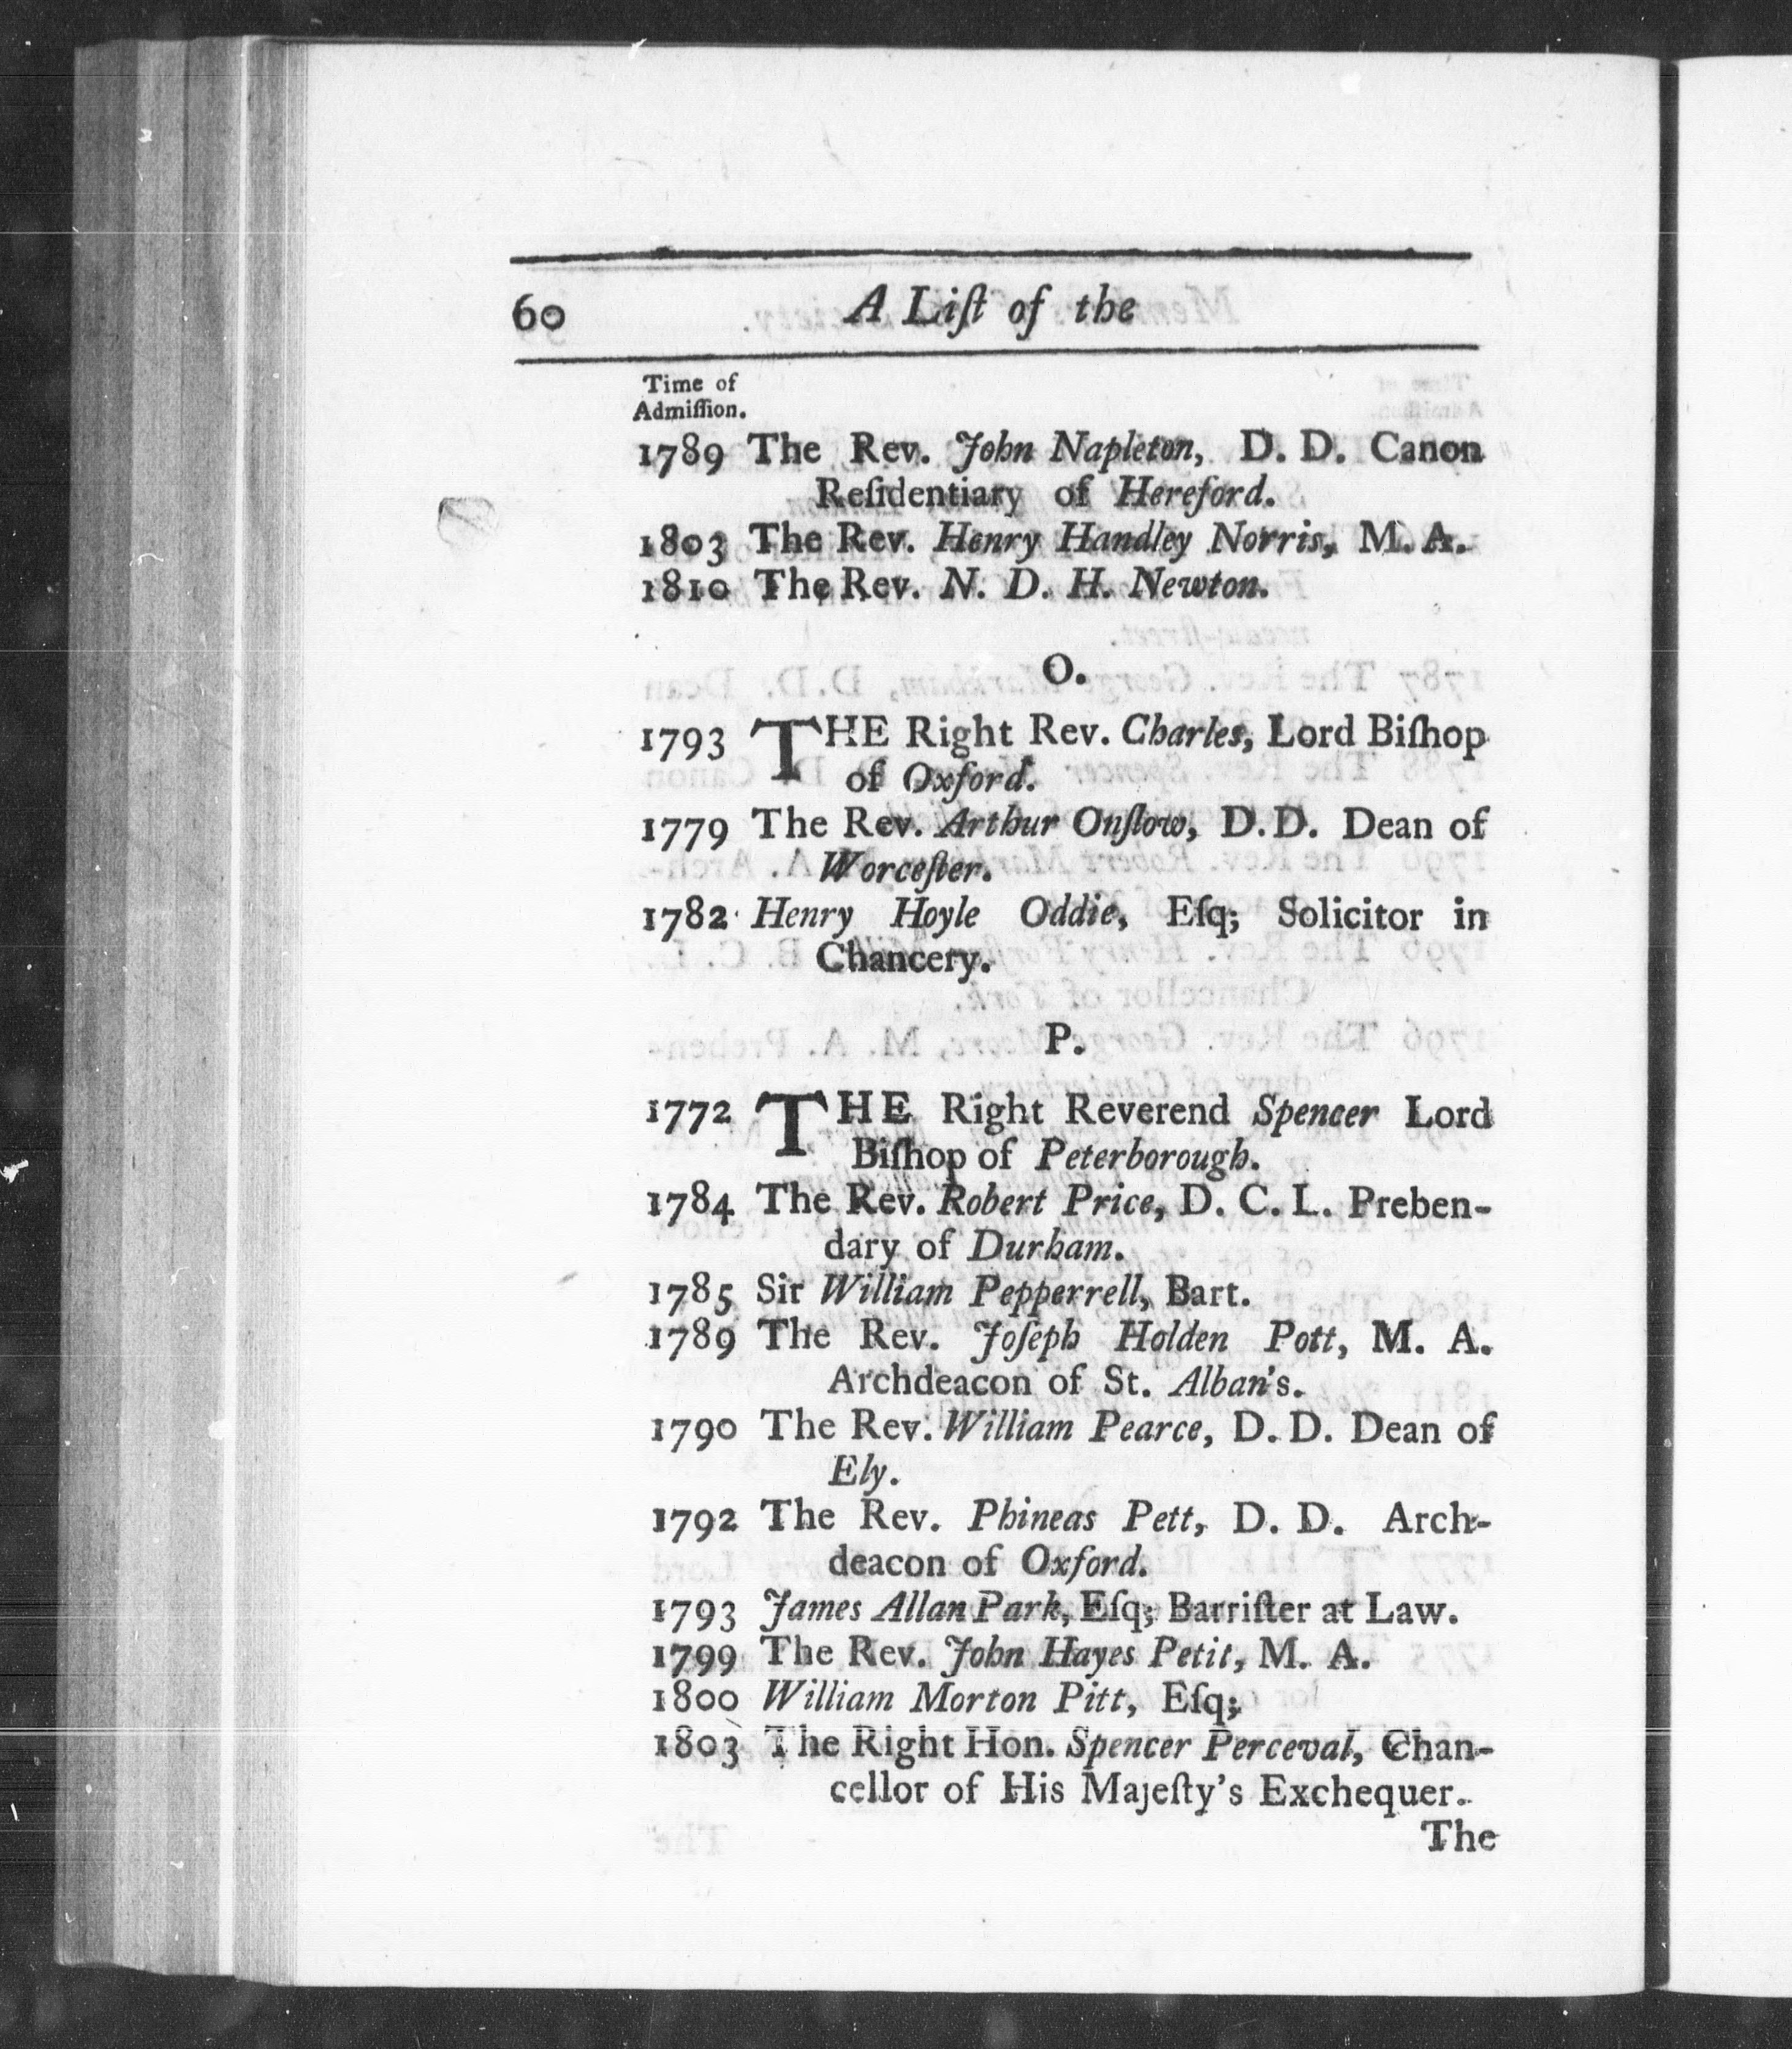 60 A Liſt of the
Time of
Admiſſion.
1789 The Rev. John Napleton, D. D. Canon
Reſidentiary of Hereford.
1803 The Rev. Henry Handley Norris, M. A.
1810 The Rev. N. D. H. Newton.
O.
1793 THE Right Rev. Charles, Lord Biſhop
of Oxford.
1779 The Rev. Arthur Onſlow, D. D. Dean of
Worceſter.
1782 Henry Hoyle Oddie, Eſq; Solicitor in
Chancery.
P.
1772 THE Right Reverend Spencer Lord
Biſhop of Peterborough.
1784 The Rev. Robert Price, D. C. L. Preben-
dary of Durham.
1785 Sir William Pepperrell, Bart.
1789 The Rev. Joſeph Holden Pott, M. A.
Archdeacon of St. Alban's.
1790 The Rev. William Pearce, D. D. Dean of
Ely.
1792 The Rev. Phineas Pett, D. D. Arch-
deacon of Oxford.
1793 James Allan Park, Eſq; Barriſter at Law.
1799 The Rev. John Hayes Petit, M. A.
1800 William Morton Pitt, Eſq;
1803 The Right Hon. Spencer Perceval, Chan-
cellor of His Majeſty's Exchequer.
The